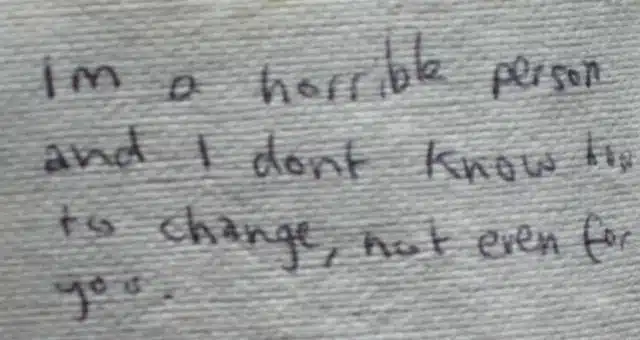 im a horrible person
and I dont know how
to change, not even for
you.